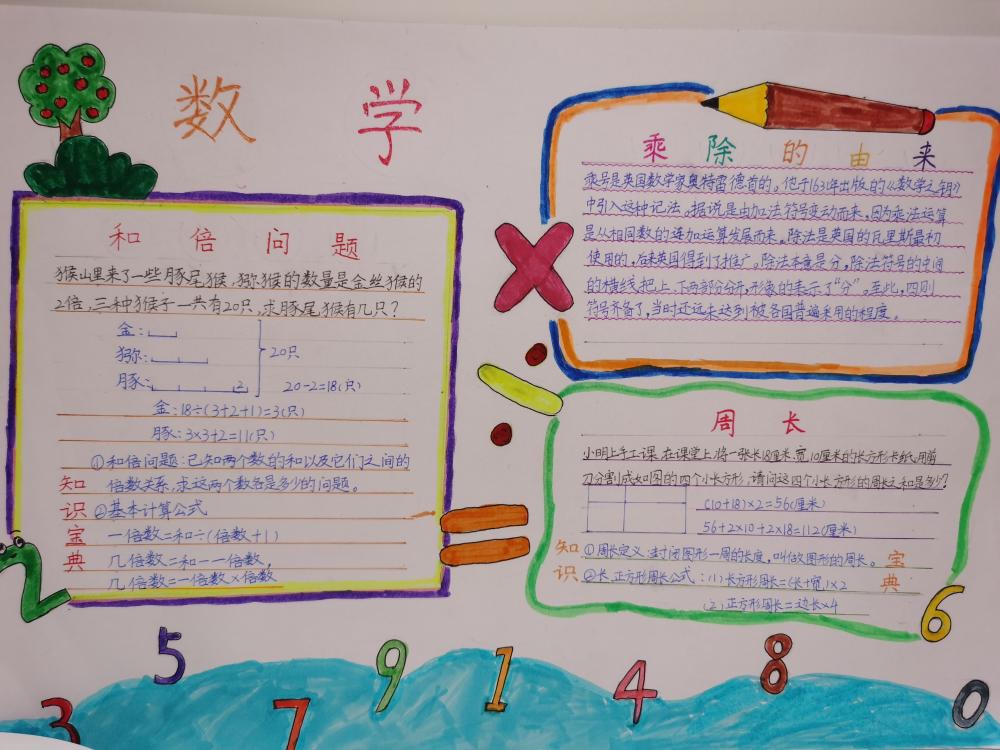 数 学
和倍问题
猴山里来了一些豚尾猴、猕猴的数量是金丝猴的
2倍,三种猴子一共有20只,求豚尾猴有几只?
金:
猕:
20只
豚: 2
20-2=18(只)
金:18÷(3+2+1)=3(只)
豚:3×3+2=11(只)
知识宝典
①和倍问题:已知两个数的和以及它们之间的
倍数关系,求这两个数各是多少的问题。
②基本计算公式
一倍数=和÷(倍数+1)
几倍数=和-一倍数,
几倍数=一倍数×倍数
乘除的由来
乘号是英国数学家奥特雷德首的。他于1631年出版的《数学之钥》
中引入这种记法。据说是由加法符号变动而来,因为乘法运算
是从相同数的连加运算发展而来。除法是英国的瓦里斯最初
使用的,后来英国得到了推广。除法本意是分,除法符号的中间
的横线把上、下两部分分开,形象的表示了“分”。至此,四则
符号齐备了,当时还远未达到被各国普遍采用的程度。
周长
小明上手工课,在课堂上,将一张长18厘米,宽10厘米的长方形卡纸,用剪
刀分割成如图的四个小长方形,请问这四个小长方形的周长之和是多少?
(10+18)×2=56(厘米)
56+2×10+2×18=112(厘米)
知识宝典
①周长定义:封闭图形一周的长度,叫做图形的周长。
②长、正方形周长公式:(1)长方形周长=(长+宽)×2
(2)正方形周长=边长×4
2
6
5
9
1
4
8
0
3
7